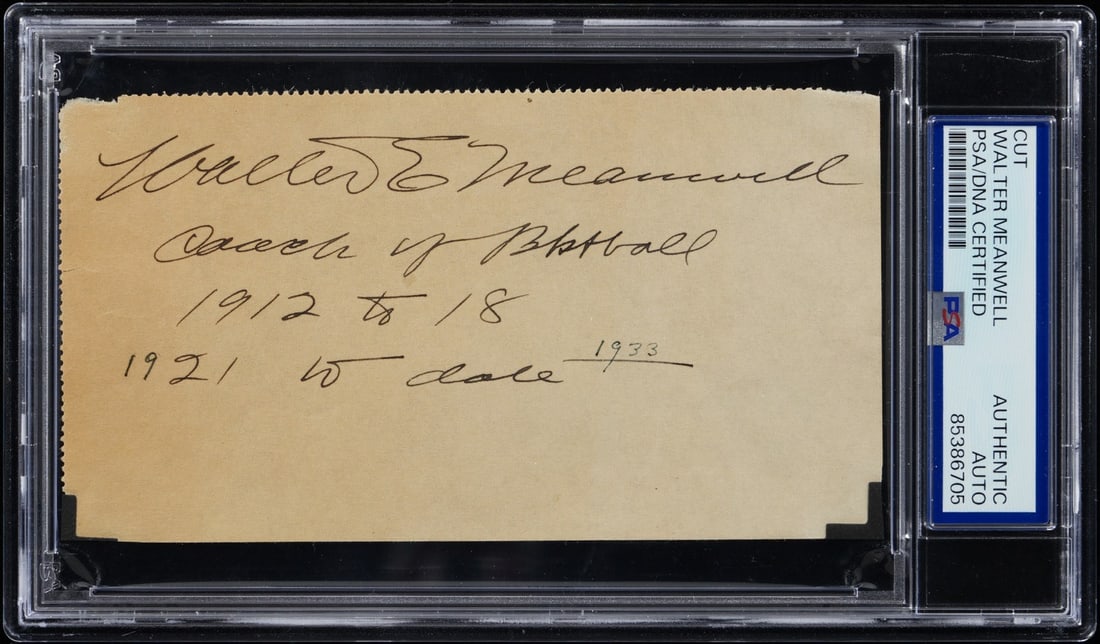 Walter E Meanwell
Coach of Bkstball
1912 to 18
1921 to date 1933
CUT
WALTER MEANWELL
PSA/DNA CERTIFIED
PSA
AUTHENTIC
AUTO
85386705